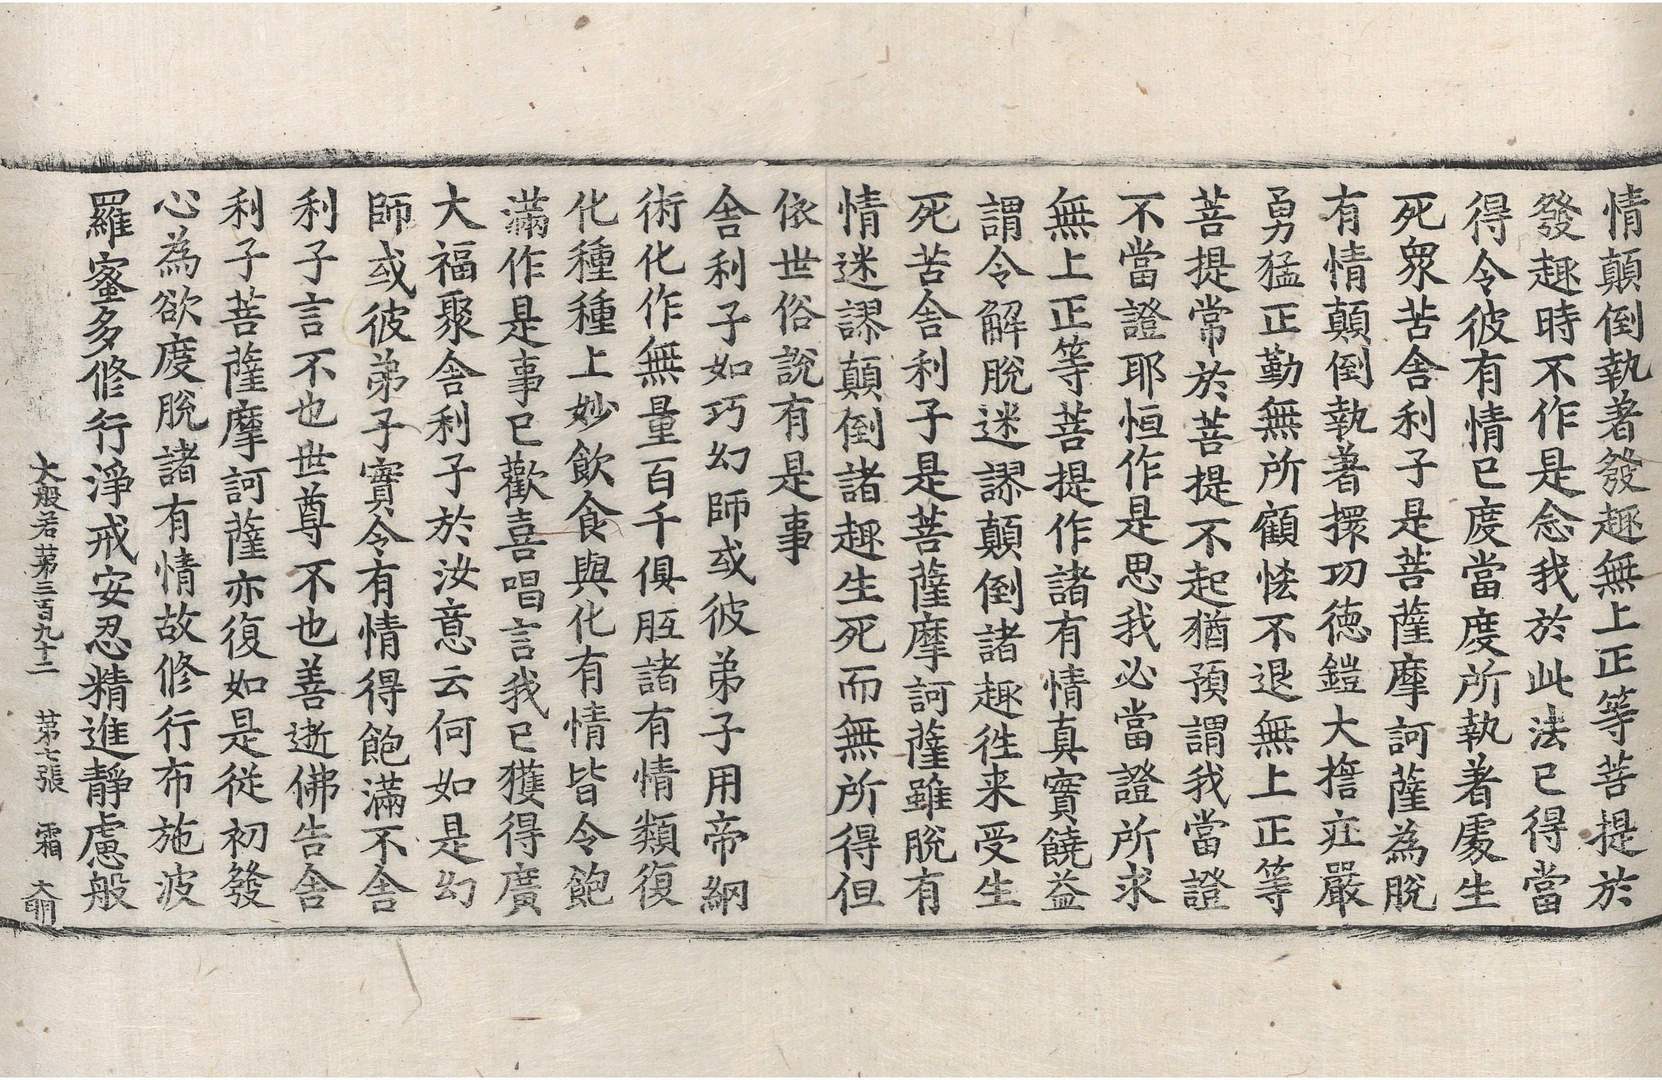 情顛倒執著發趣無上正等菩提於
發趣時不作是念我於此法已得當
得令彼有情已度當度所執著處生
死眾苦舍利子是菩薩摩訶薩為脫
有情顛倒執著擐功德鎧大誓莊嚴
勇猛正勤無所顧恡不退無上正等
菩提常於菩提不起猶預謂我當證
不當證耶恒作是思我必當證所求
無上正等菩提作諸有情真實饒益
謂令解脫迷謬顛倒諸趣徃来受生
死苦舍利子是菩薩摩訶薩雖脫有
情迷謬顛倒諸趣生死而無所得但
依世俗說有是事
舍利子如巧幻師或彼弟子用帝網
術化作無量百千俱胝諸有情類復
化種種上妙飲食與化有情皆令飽
滿作是事已歡喜唱言我已獲得廣
大福聚舍利子於汝意云何如是幻
師或彼弟子實令有情得飽滿不舍
利子言不也世尊不也善逝佛告舍
利子菩薩摩訶薩亦復如是從初發
心為欲度脫諸有情故修行布施波
羅蜜多修行淨戒安忍精進靜慮般
大般若第三百九十二 第七張 霜 大明